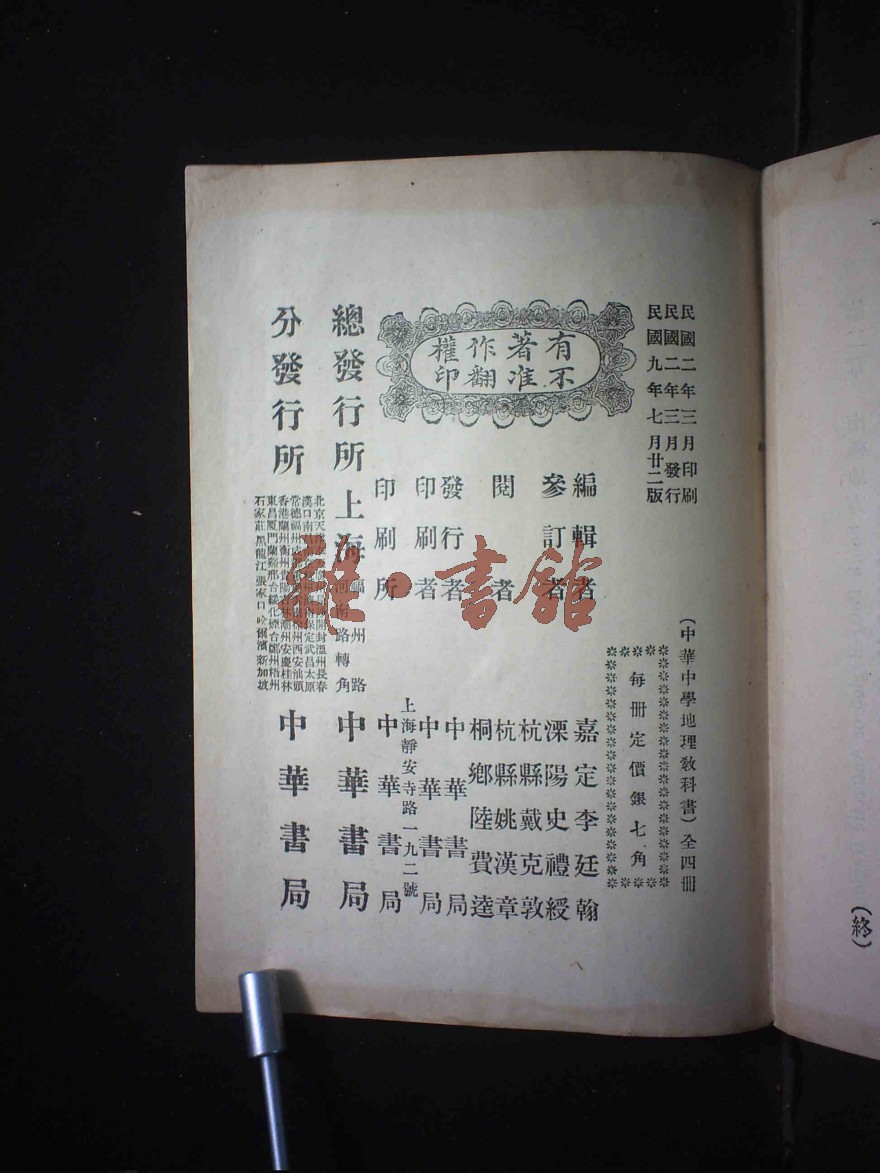 民國二年三月印刷
民國二年三月發行
民國九年七月廿二版
(中華中學地理敎科書)全四册
每册定價銀七角
有著作權
不准翻印
編輯者 嘉定李廷翰
參訂者 溧陽史禮綬
閱者 杭縣戴克敦
杭縣姚漢章
桐鄉陸費逵
發行者 中華書局
印刷者 中華書局
印刷所 上海靜安寺路一九二號
中華書局
總發行所 上海福州路
河南路轉角
中華書局
分發行所
北京天津
開封溫州長春
漢口南昌
保定武昌太原
常德福州
州西安汕頭
香港蘭州衡州
潮州安慶桂林
東昌厦門蘭谿邢台綏化煙台鄭州梧州
石家莊黑龍江張家口哈爾濱新加坡
中華書局
(終)
雜·書館